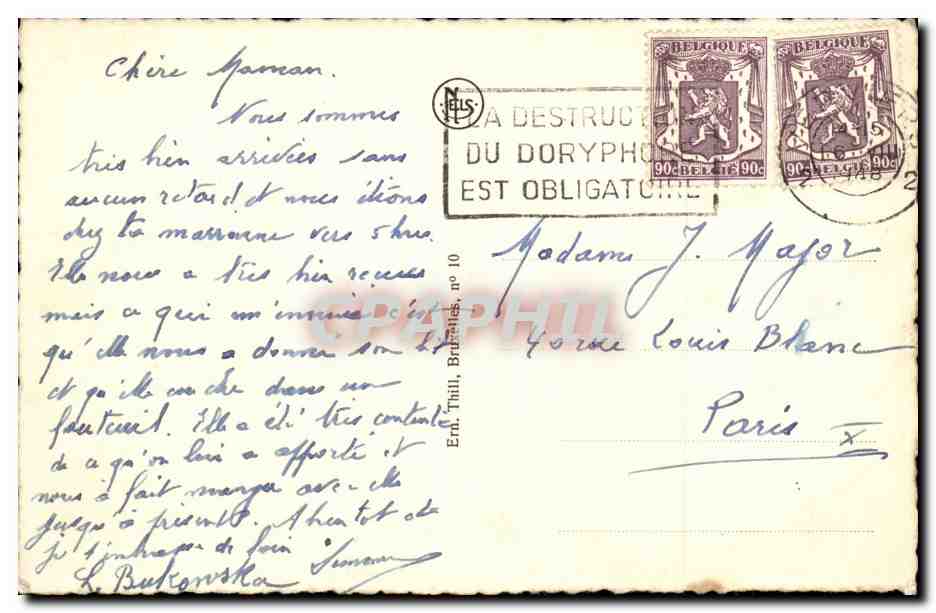 Chère Maman.
Nous sommes
très bien arrivées sans
aucun retard et nous étions
chez ta marraine vers 5 hres.
Elle nous a très bien reçues
mais ce qui m'ennuie c'est
qu'elle nous a donné son lit
et qu'elle couche dans un
fauteuil. Elle a été très contente
de ce qu'on lui a apporté et
nous a fait manger avec elle
jusqu'à présent. A bientôt
je t'embrasse de loin Simone
L. Bukowska
NELS
LA DESTRUCT
DU DORYPHO
EST OBLIGATOIRE
BELGIQUE
90c BELGIE 90c
BELGIQUE
90c BELGIE 90c
Ern. Thill, Bruxelles, nº 10
CPAPHIL
Madame J. Major
40 rue Louis Blanc
Paris X